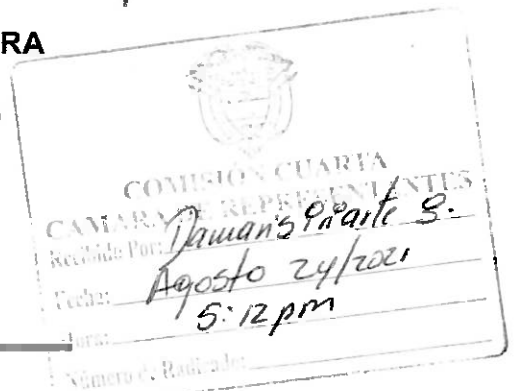 RA
COMISIÓN CUARTA
CAMARA DE REPRESENTANTES
Recibido Por: Damaris
Fecha: Agosto 24/2021
Hora: 5:12 pm
Número de Radicado: